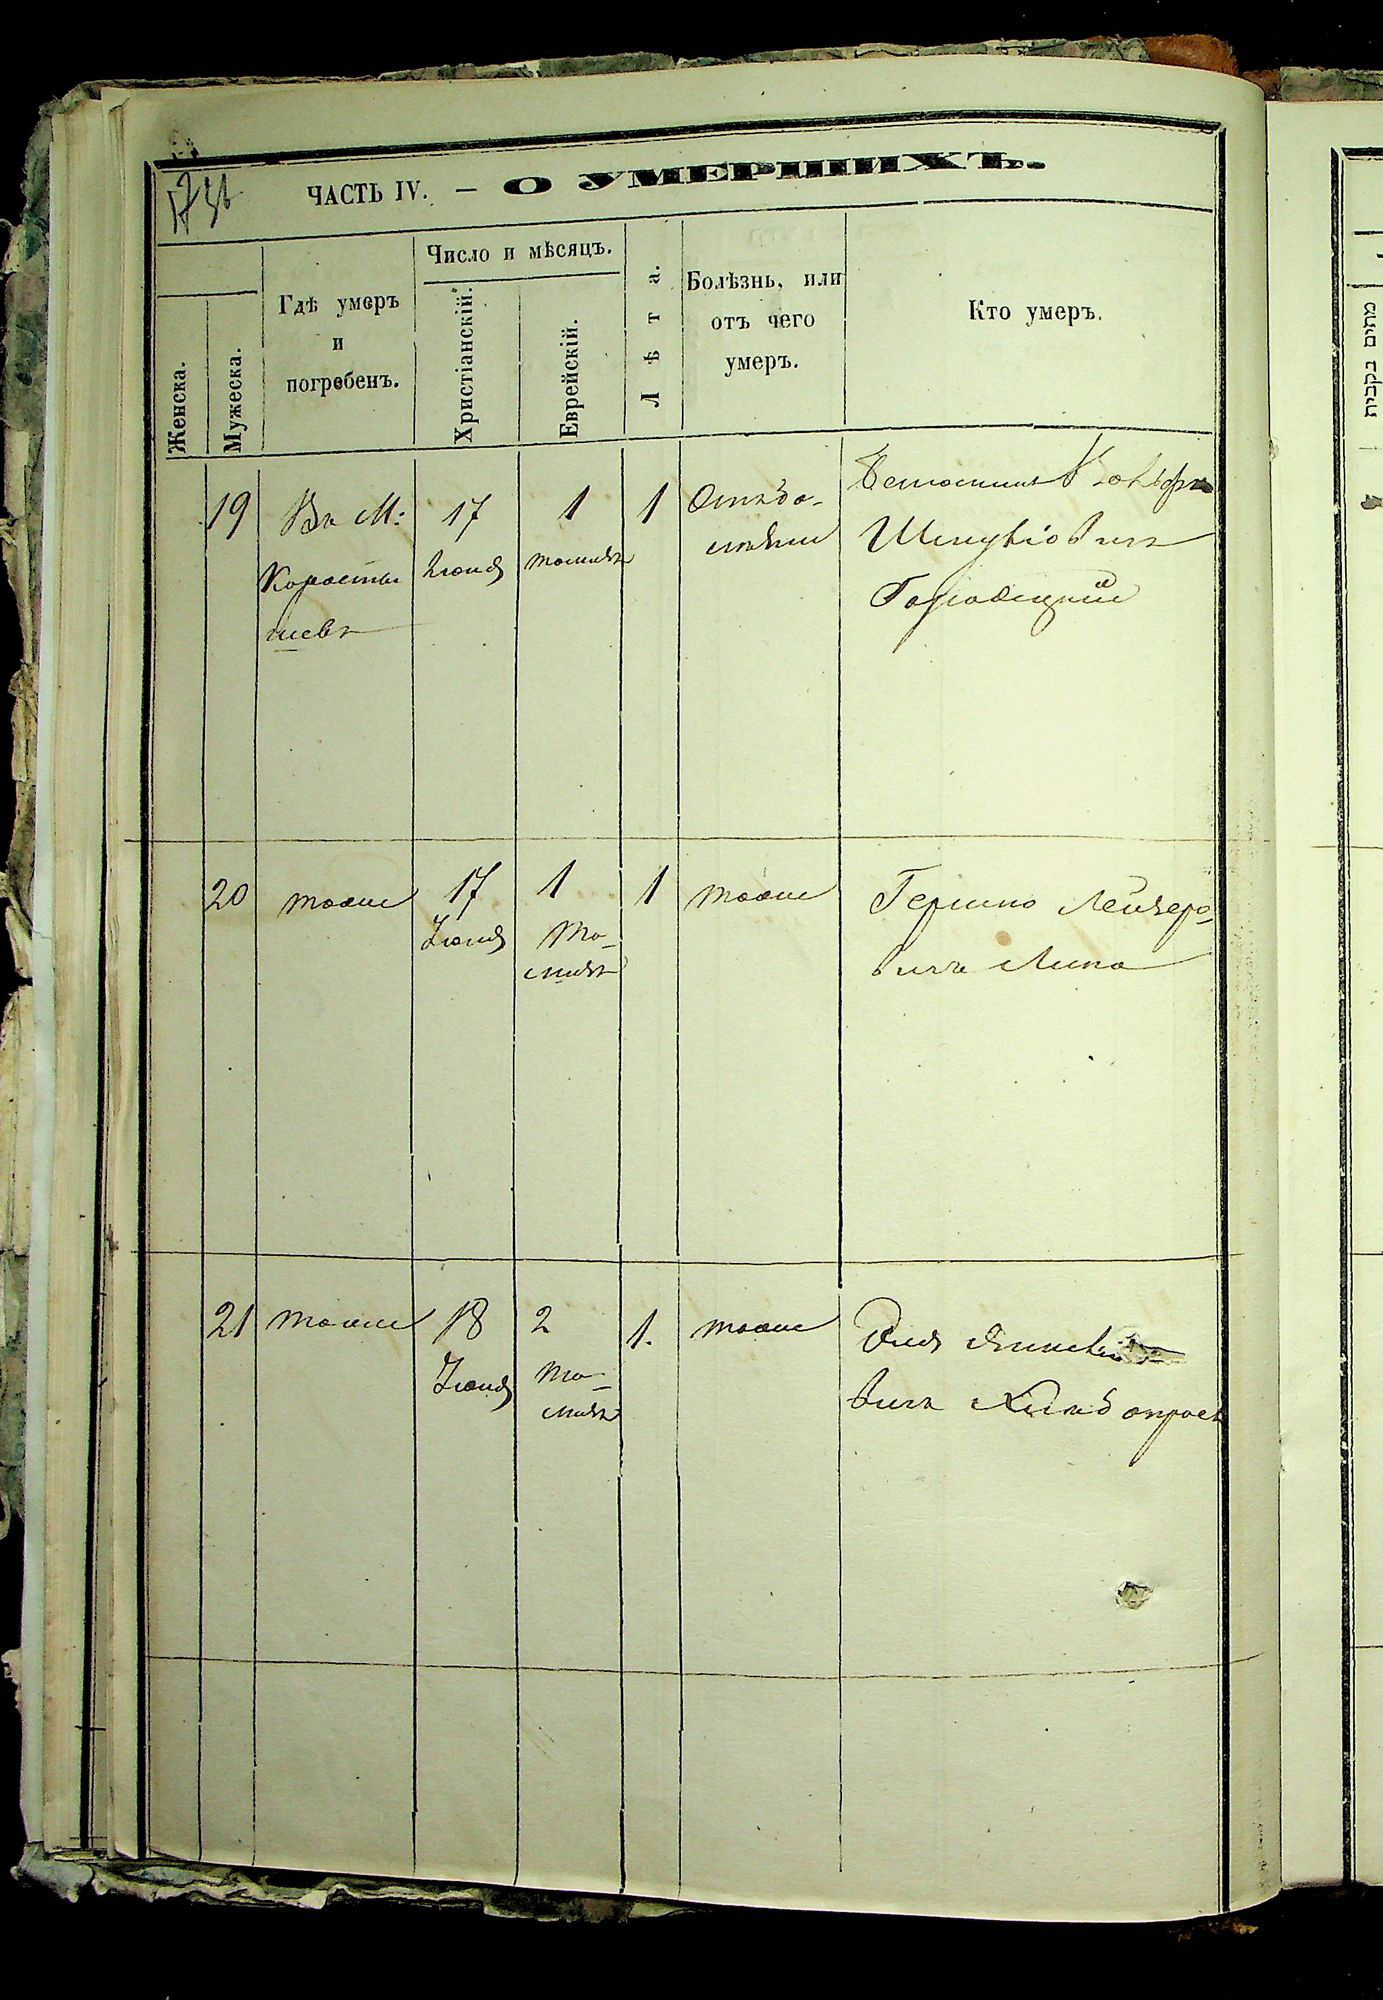 ЧАСТЬ IV. — О УМЕРШИХЪ.
Женска.
Мужеска.
Гдѣ умеръ
и
погребенъ.
Число и мѣсяцъ.
Христіанскій.
Еврейскій.
Лѣта.
Болѣзнь, или
отъ чего
умеръ.
Кто умеръ.
19
Въ М:
Коросты
шевѣ
17
Іюня
1
тамызъ
1
Вольфъ
Шмулiовичъ
Городецкiй
20
тоже
17
Іюня
1
Та-
мызъ
1
тоже
Гершко Лейзеро-
вичъ Липа
21
тоже
18
Іюня
2
та-
мызъ
1.
тоже
вичъ
מתים בקבית